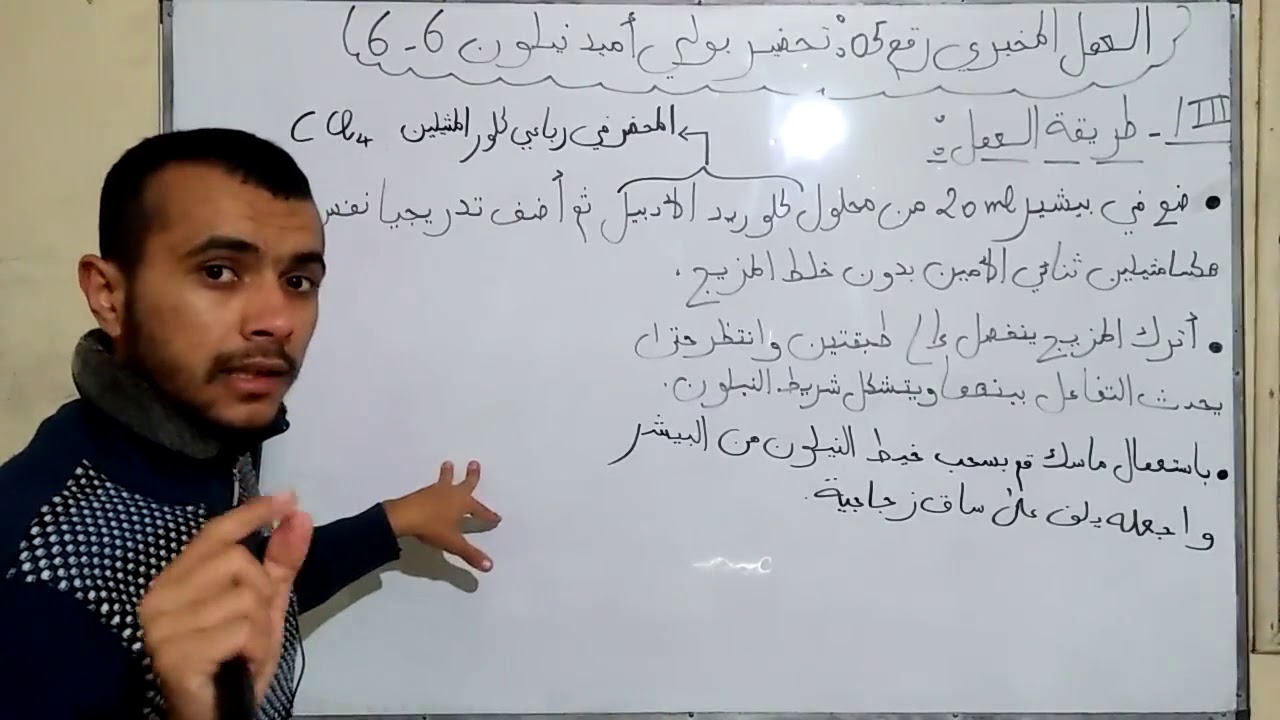 العمل المخبري رقم 05: تحضير بولي أميد نيلون 6-6
III - طريقة العمل:
المحضر في رباعي كلور المثيلين CCl4
• ضع في بيشير 20ml من محلول كلوريد الأديبيل ثم أضف تدريجيا نفس
هكسامثيلين ثنائي الأمين بدون خلط المزيج.
• أترك المزيج ينفصل إلى طبقتين وانتظر حتى
يحدث التفاعل بينهما ويتشكل شريط النيلون.
• باستعمال ماسك قم بسحب خيط النيلون من البيشر
واجعله يلف على ساق زجاجية.